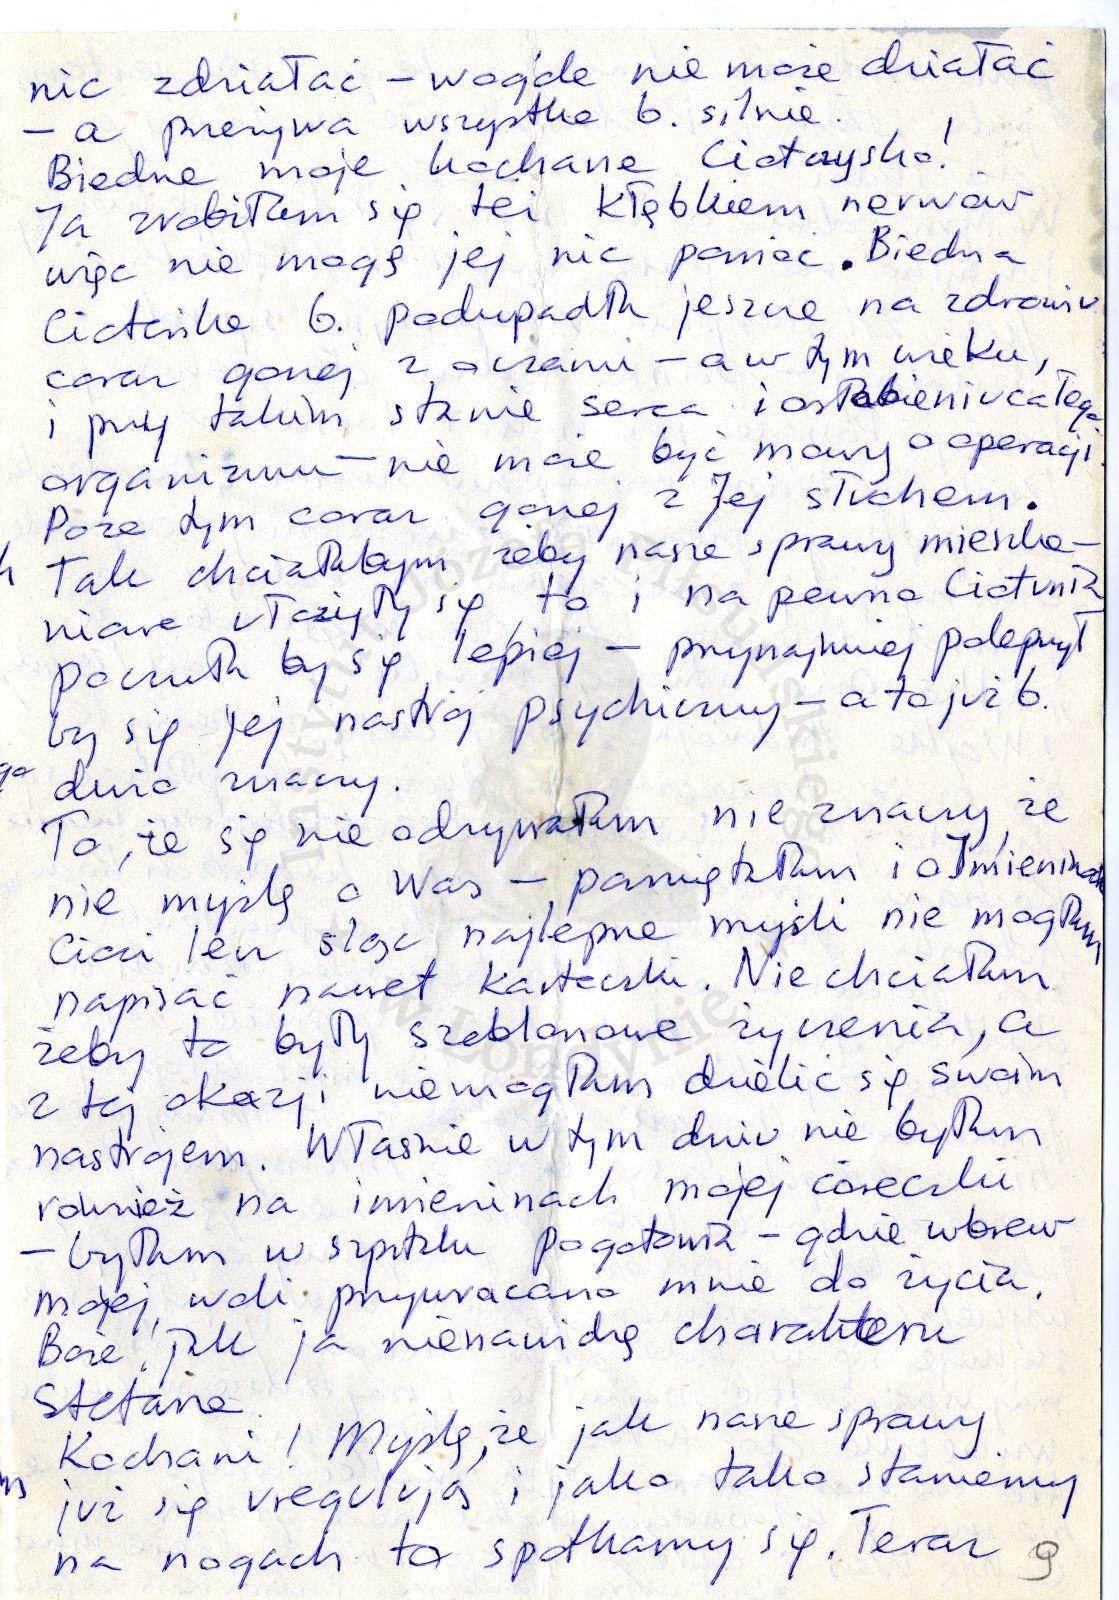 nic zdziałać – wogóle nie może działać
– a przeżywa wszystko b. silnie.
Biedne moje kochane Ciotczysko!
Ja zrobiłam się też kłębkiem nerwów
więc nie mogę jej nic pomóc. Biedna
Cioteńka b. podupadła jeszcze na zdrowiu
coraz gorzej z oczami – a w tym wieku,
i przy takim stanie serca i osłabieniu całego
organizmu – nie może być mowy o operacji.
Poza tym coraz gorzej z Jej słuchem.
Tak chciałabym żeby nasze sprawy mieszka-
niowe ułożyły się to i na pewno Ciotunia
poczuła by się lepiej – przynajmniej polepszył
by się Jej nastrój psychiczny – a to już b.
dużo znaczy.
To, że się nie odzywałam nie znaczy, że
nie myślę o Was – pamiętałam i o Imieninach
Cioci lecz śląc najlepsze myśli nie mogłam
napisać nawet karteczki. Nie chciałam
żeby to były szablonowe życzenia, a
z tej okazji nie mogłam dzielić się swoim
nastrojem. Właśnie w tym dniu nie byłam
również na imieninach mojej córeczki
– byłam w szpitalu Pogotowia – gdzie wbrew
mojej woli przywracano mnie do życia.
Boże, jak ja nienawidzę charakteru
Stefana.
Kochani! Myślę, że jak nasze sprawy
już się uregulują i jako tako staniemy
na nogach to spotkamy się. Teraz 9
Instytut Józefa Piłsudskiego
w Londynie